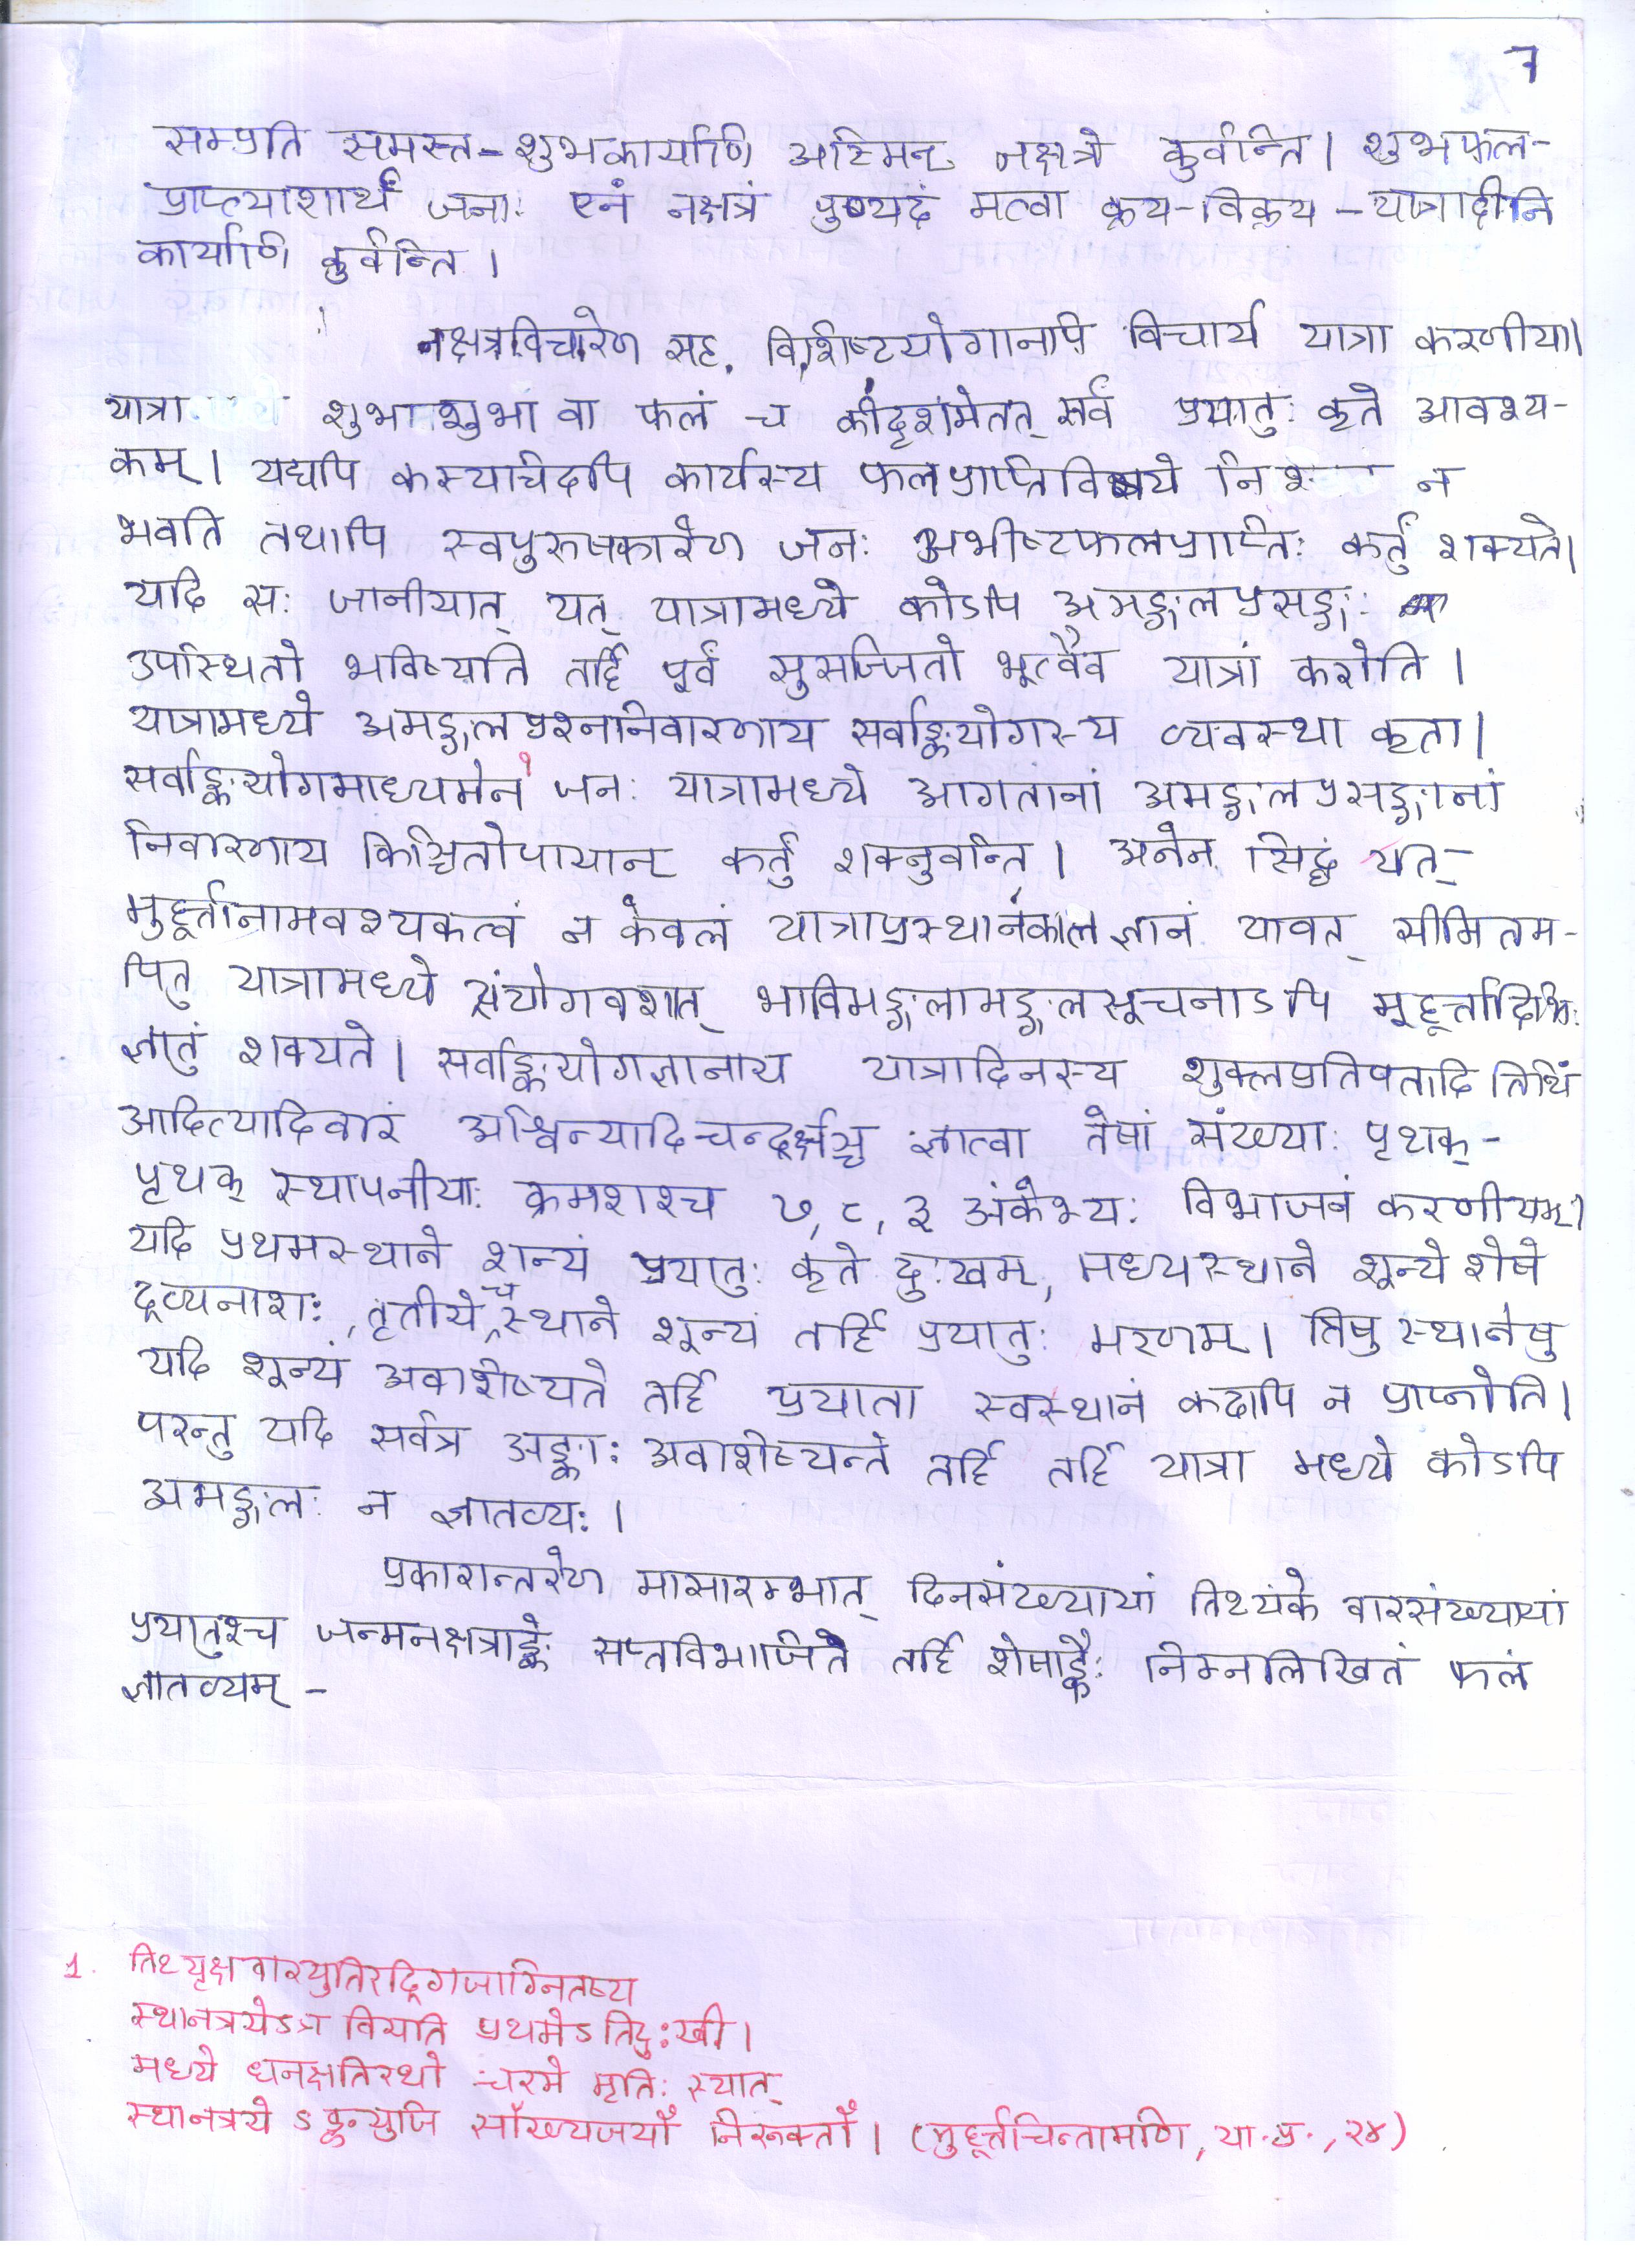 7
सम्प्रति समस्त-शुभकार्याणि अस्मिन् नक्षत्रे कुर्वन्ति। शुभफल-
प्राप्त्याशार्थं जनाः एनं नक्षत्रं पुण्यदं मत्वा क्रय-विक्रय-यात्रादीनि
कार्याणि कुर्वन्ति।
नक्षत्रविचारेण सह विशिष्टयोगानपि विचार्य यात्रा करणीया।
यात्रा शुभाशुभा वा फलं च कीदृशमेतत् सर्वं प्रयातुः कृते आवश्य-
कम्। यद्यपि कस्यचिदपि कार्यस्य फलप्राप्तिविषये न
भवति तथापि स्वपुरुषकारेण जनः अभीष्टफलप्राप्तिः कर्तुं शक्यते।
यदि सः जानीयात् यत् यात्रामध्ये कोऽपि अमङ्गलप्रसङ्गः
उपस्थितो भविष्यति तर्हि पूर्वं सुसज्जितो भूत्वैव यात्रां करोति।
यात्रामध्ये अमङ्गलप्रश्ननिवारणाय सर्वाङ्कयोगस्य व्यवस्था कृता।
सर्वाङ्कयोगमाध्यमेन१ जनः यात्रामध्ये आगतानां अमङ्गलप्रसङ्गानां
निवारणाय किञ्चितोपायान् कर्तुं शक्नुवन्ति। अनेन सिद्धं यत्-
मुहूर्तानामवश्यकत्वं न केवलं यात्राप्रस्थानकालज्ञानं यावत् सीमितम-
पितु यात्रामध्ये संयोगवशात् भाविमङ्गलामङ्गलसूचनाऽपि मूहूर्त्तादिभिः
ज्ञातुं शक्यते। सर्वाङ्कयोगज्ञानाय यात्रादिनस्य शुक्लप्रतिपतादि तिथिं
आदित्यादिवारं अश्विन्यादिचन्द्रर्क्षञ्च ज्ञात्वा तेषां संख्याः पृथक्-
पृथक् स्थापनीयाः क्रमशश्च ७, ८, ३ अंकेभ्यः विभाजनं करणीयम्।
यदि प्रथमस्थाने शून्यं प्रयातुः कृते दुःखम्, मध्यस्थाने शून्ये शेषे
द्रव्यनाशः, तृतीये च स्थाने शून्यं तर्हि प्रयातुः मरणम्। त्रिषु स्थानेषु
यदि शून्यं अवशिष्यते तर्हि प्रयाता स्वस्थानं कदापि न प्राप्नोति।
परन्तु यदि सर्वत्र अङ्काः अवशिष्यन्ते तर्हि तर्हि यात्रा मध्ये कोऽपि
अमङ्गलः न ज्ञातव्यः।
प्रकारान्तरेण मासारम्भात् दिनसंख्यायां तिथ्यंके वारसंख्यायां
प्रयातुश्च जन्मनक्षत्राङ्के सप्तविभाजिते तर्हि शेषाङ्कैः निम्नलिखितं फलं
ज्ञातव्यम् -
1. तिथ्यृक्षवारयुतिरद्रिगजाग्नितष्य
स्थानत्रयेऽत्र वियति प्रथमेऽतिदुःखी।
मध्ये धनक्षतिरथो चरमे मृतिः स्यात्
स्थानत्रयेऽङ्कयुजि सौख्यजयौ निरुक्तौ। (मुहूर्त्तचिन्तामणि, या.प्र., २४)